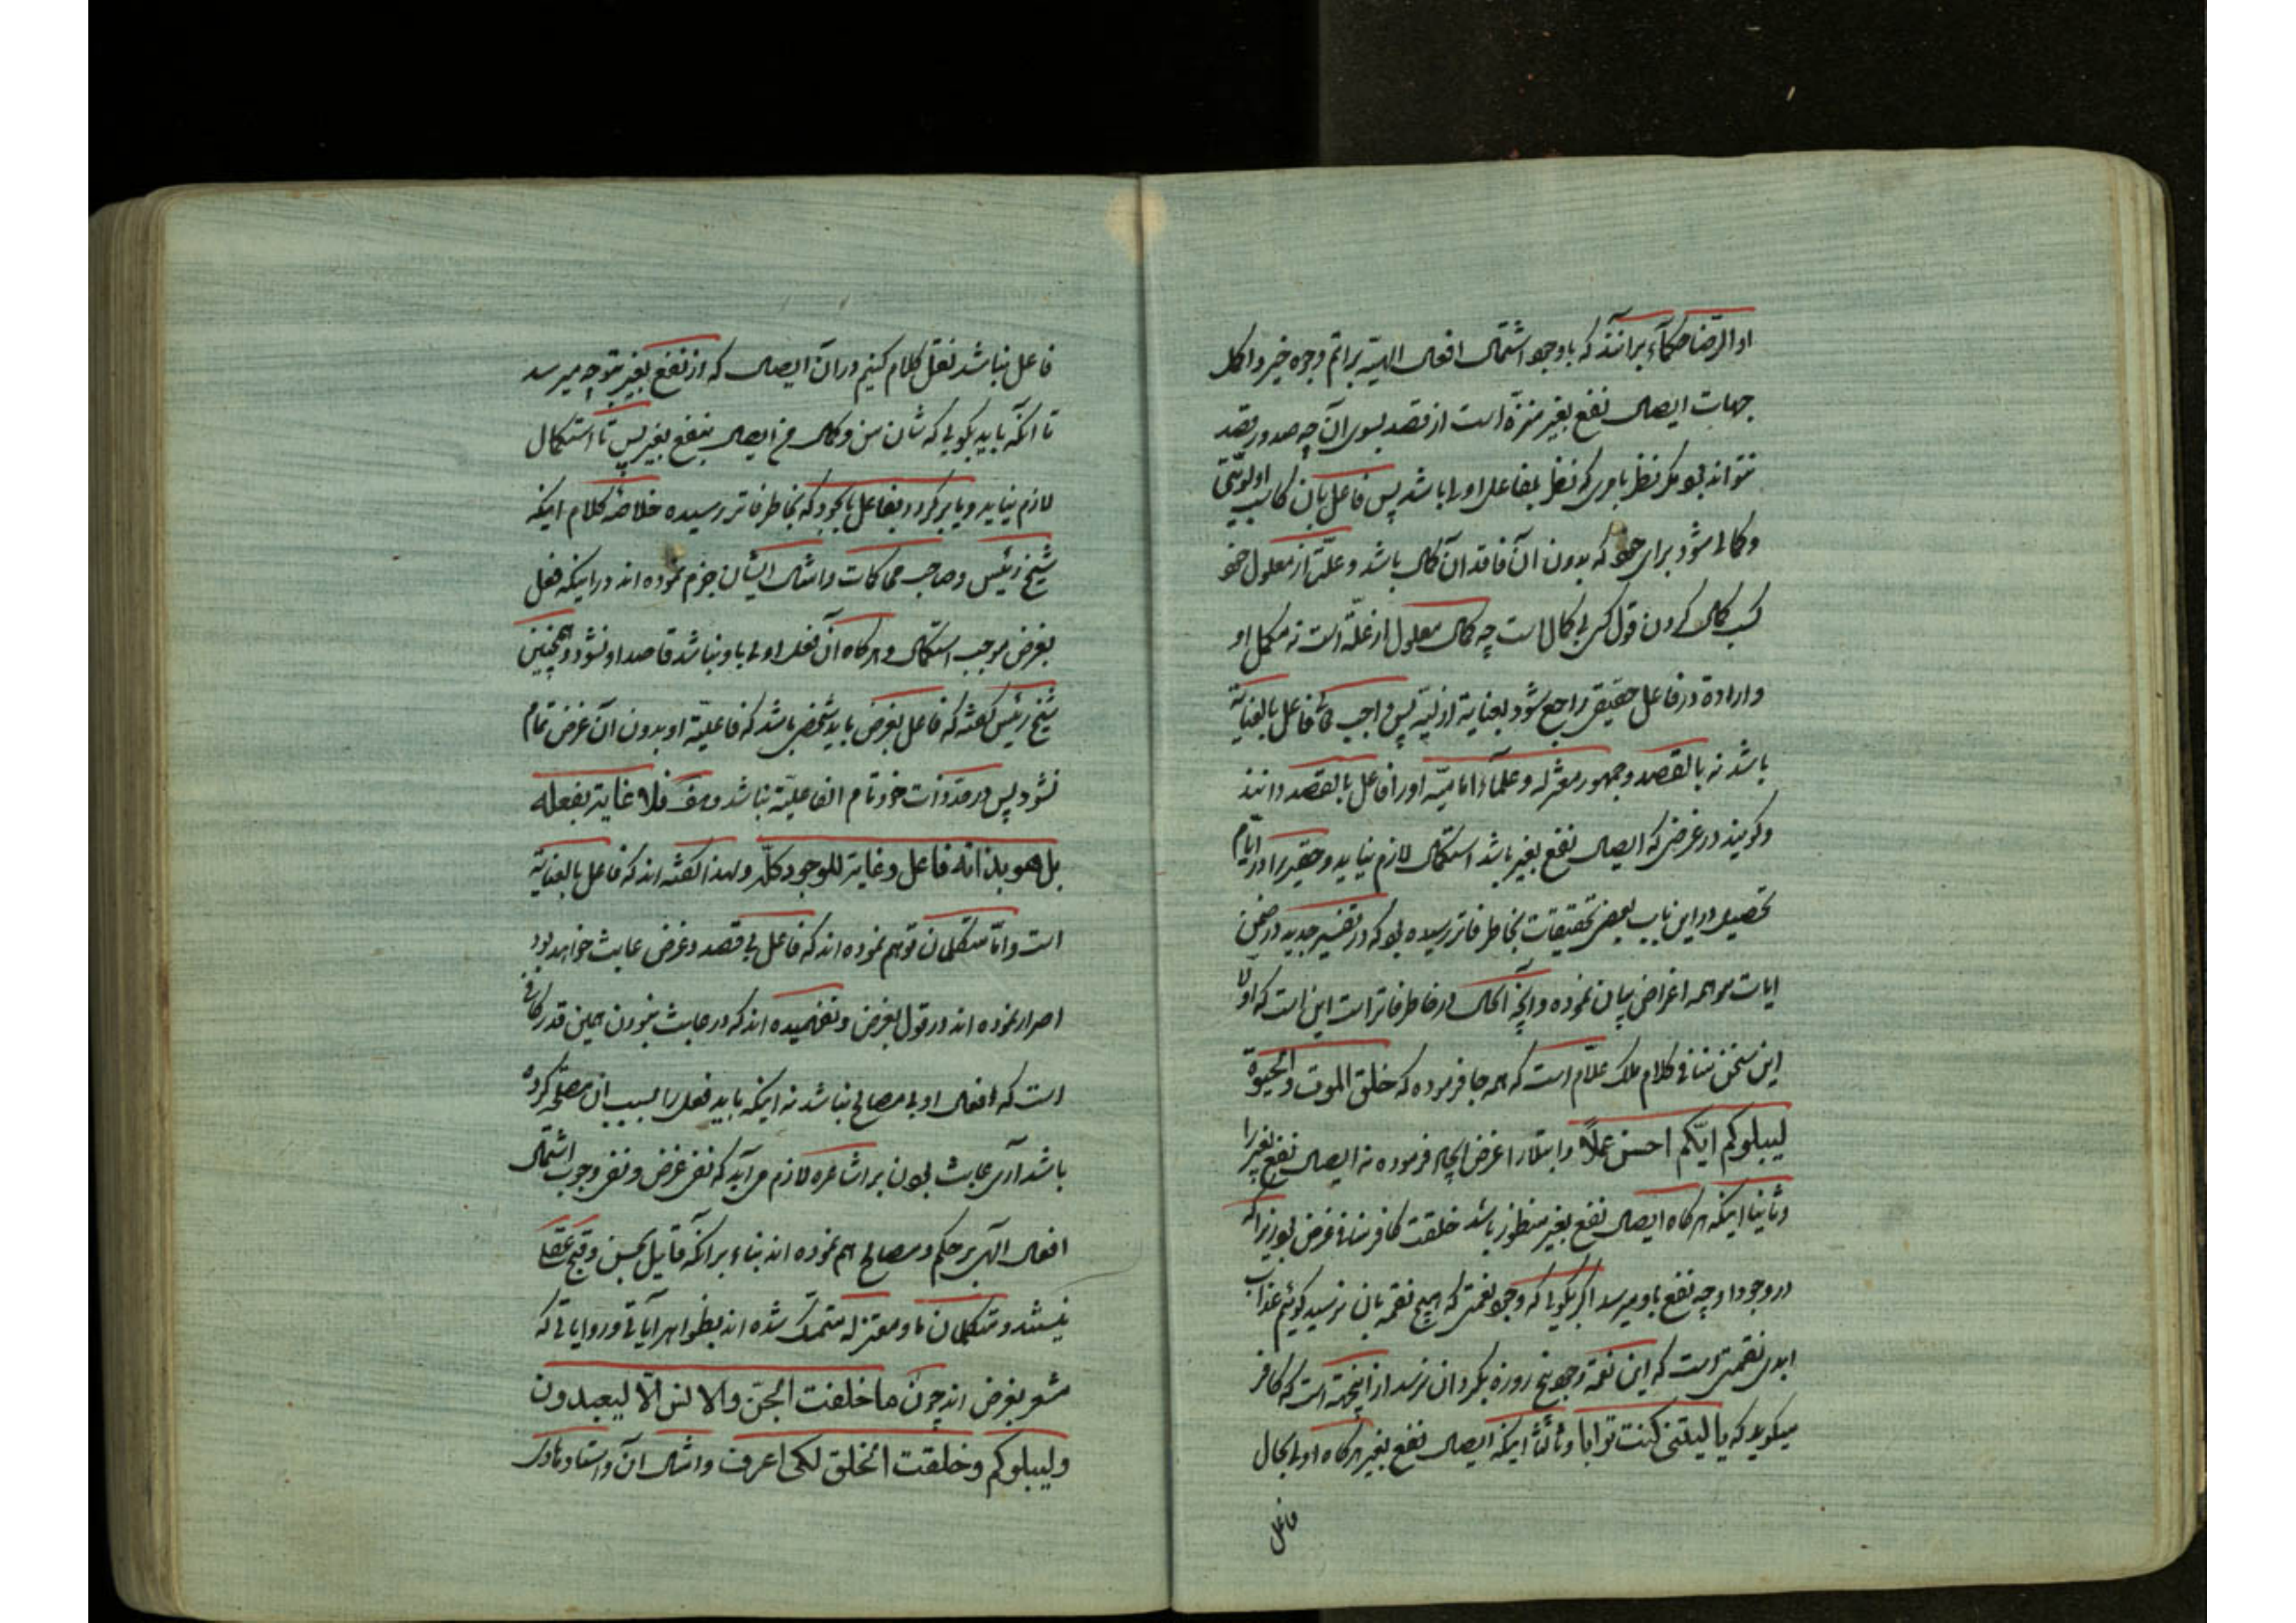 او الرضا حکماء برانند که باوجود اشتمال افعال الهیة بر اتم وجوه خیر و اکمل
جهات ایصال نفع بغیر منزه است از قصد بسوی آن چه صدور قصد
نتواند بود مکر نظر بامری که نظر بفاعل اولی باشد پس فاعل بان کاسب اولویتی
و کمالی شود برای خود که بدون آن فاقد آن کمال باشد و علت از معلول خود
کسب کمال کردن قول کسی بی کمال است چه کمال معلول از علة است نه مکمل او
و اراده در فاعل حقیقی راجع شود بعنایة ازلیه پس واجب تعالی فاعل بالعنایة
باشد نه بالقصد و جمهور معتزله و علماء امامیه او را فاعل بالقصد دانند
و کویند در غرضی که ایصال نفع بغیر باشد استکمال لازم نیاید و حقیر را در ایام
تحصیل در این باب بعضی تحقیقات بخاطر فاتر رسیده بود که در تفسیر جدید در ضمن
ایات موهمه اغراض بیان نموده و آنچه الحال در خاطر فاتر است این است که اولا
این سخن منافی کلام ملک علام است که هر جا فرموده که خلق الموت و الحیوة
لیبلوکم ایکم احسن عملا و ابتلا را غرض ایجاد فرموده نه ایصال نفع بغیر را
و ثانیا اینکه هرکاه ایصال نفع بغیر منظور باشد خلقت کافر منافی غرض بود زیرا که
در وجود او چه نفع باو میرسد اکر بکویی که وجود نعمتی که هیچ نقمه بان نرسید کوئیم عذاب
ابدی نقمتی است که این نعمة وجود پنج روزه بکرد آن نرسد از اینجهة است که کافر
میکوید که یا لیتنی کنت ترابا و ثالثا اینکه ایصال نفع بغیر هرکاه اولی بحال
فاعل
فاعل نباشد نقل کلام کنیم در آن ایصال که از نفع بغیر متوجه میرسد
تا آنکه باید بکویی که شان من و کمال من ایصال نفع بغیر پس تا استکمال
لازم نیاید و یا برکردد بفاعل بالجود که بخاطر فاتر رسیده خلاصه کلام اینکه
شیخ رئیس و صاحب محاکمات و امثال ایشان جزم نموده اند در اینکه فعل
بغرض موجب استکمال و هرکاه آن فعل اولی باو نباشد قاصد او نشود و همچنین
شیخ رئیس کفته که فاعل بغرض باید شخصی باشد که فاعلیة او بدون آن غرض تمام
نشود پس در حد ذات خود تام الفاعلیة نباشد و هف فلا غایة بفعله
بل هو بذاته فاعل و غایة للوجود کله و لهذا کفته اند که فاعل بالعنایة
است و اما متکلمان توهم نموده اند که فاعل بی قصد و غرض عابث خواهد بود
اصرار نموده اند در قول بغرض و نفهمیده اند که در عابث نبودن همین قدر کافی
است که افعال او بی مصالح نباشد نه اینکه باید فعل را بسبب آن مصلحة کرده
باشد آری عابث بودن بر اشاعره لازم می آید که نفی غرض و نفی وجوب اشتمال
افعال الهی بر حکم و مصالح هم نموده اند بناء بر آنکه قایل بحسن و قبح عقلی
نیستند و متکلمان ما و معتزله متمسک شده اند بظواهر آیاتی و روایاتی که
مشعر بغرض اند چون ما خلقت الجن و الانس الا لیعبدون
و لیبلوکم و خلقت الخلق لکی اعرف و امثال آن و استاد